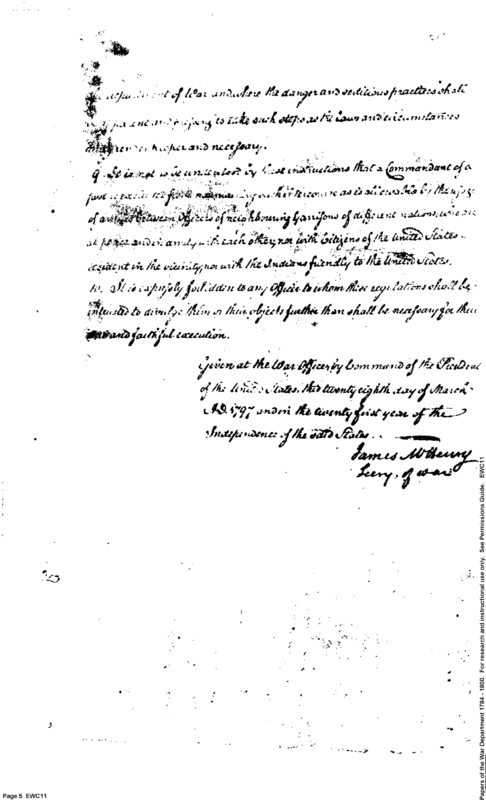 department of War and where the danger and seditious practices shall
be apparent and pressing to take such steps as the laws and circumstances
may render proper and necessary.
9. It is not to be understood by these instructions that a Commandant of a
post is as is allowable by the usage
of armies between Officers of neighbouring Garrisons of different nations, who are
at peace and in amity with each other, nor with Citizens of the United States
resident in the vicinity, nor with the Indians friendly to the United States.
10. It is expressly forbidden to any Officer to whom these regulations shall be
intrusted to divulge them or their objects further than shall be necessary for their
and faithful execution.
Given at the War Office by Command of the President
of the United States, this twenty eighth day of March
A.D. 1797 and in the twenty first year of the
Independence of the said States.
James McHenry
Secry. of war
Page 5 EWC11
Papers of the War Department 1784 - 1800. For research and instructional use only. See Permissions Guide. EWC11